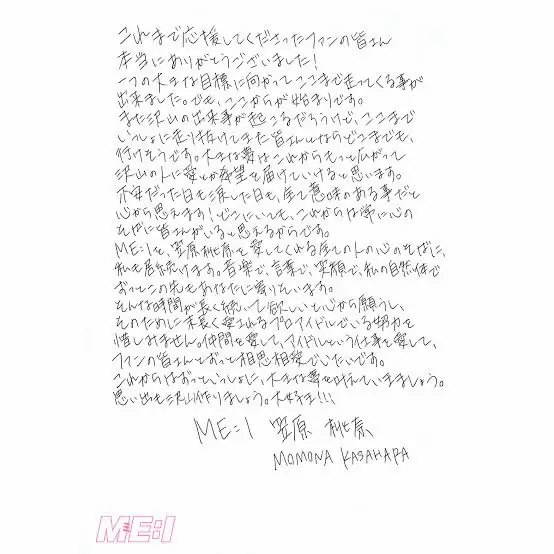 これまで応援してくださったファンの皆さん
本当にありがとうございました！
一つの大きな目標に向かってここまで走ってくる事が
出来ました。でも、ここからが始まりです。
また沢山の出来事が起こるだろうけど、ここまで
いっしょに走り抜けてきた皆さんとならどこまでも、
行けそうです。大きな夢はこれからもっと広がって
沢山の人に愛とか希望を届けていけると思います。
不安だった日も涙した日も、全て意味のある事だと
心から思えます！どこにいても、これからは常に心の
そばに皆さんがいると思えるからです。
ME:Iを、笠原桃奈を愛してくれる全ての人の心のそばに、
私も居続けます。音楽で、言葉で、笑顔で、私の自然体で
ずっとこの先もあなたに寄りそいます。
そんな時間が長く続いて欲しいと心から願うし、
そのために末長く愛されるプロアイドルでいる努力を
惜しみません。仲間を愛して、アイドルという仕事を愛して、
ファンの皆さんとずっと相思相愛でいたいです。
これからはずっといっしょに、大きな夢を叶えていきましょう。
思い出も沢山作りましょう。大好き！！！
ME:I 笠原 桃奈
MOMONA KASAHARA
ME:I